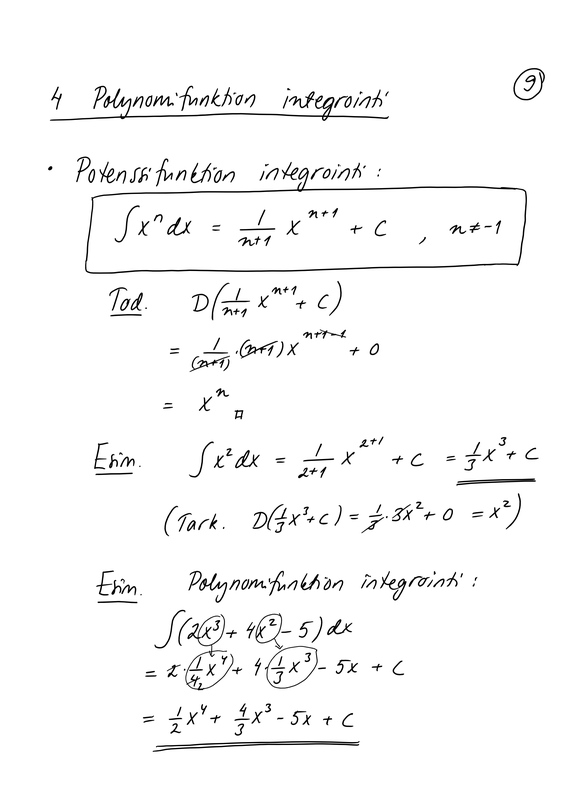 9
4 Polynomifunktion integrointi
• Potenssifunktion integrointi :
∫ xⁿ dx = 1/(n+1) x^(n+1) + C , n ≠ -1
Tod. D(1/(n+1) x^(n+1) + C)
= 1/(n+1) · (n+1) x^(n+1-1) + 0
= xⁿ □
Esim. ∫ x² dx = 1/(2+1) x^(2+1) + C = 1/3 x³ + C
(Tark. D(1/3 x³ + C) = 1/3 · 3x² + 0 = x²)
Esim. Polynomifunktion integrointi :
∫ (2x³ + 4x² - 5) dx
= 2 · 1/4₂ x⁴ + 4 · 1/3 x³ - 5x + C
= 1/2 x⁴ + 4/3 x³ - 5x + C